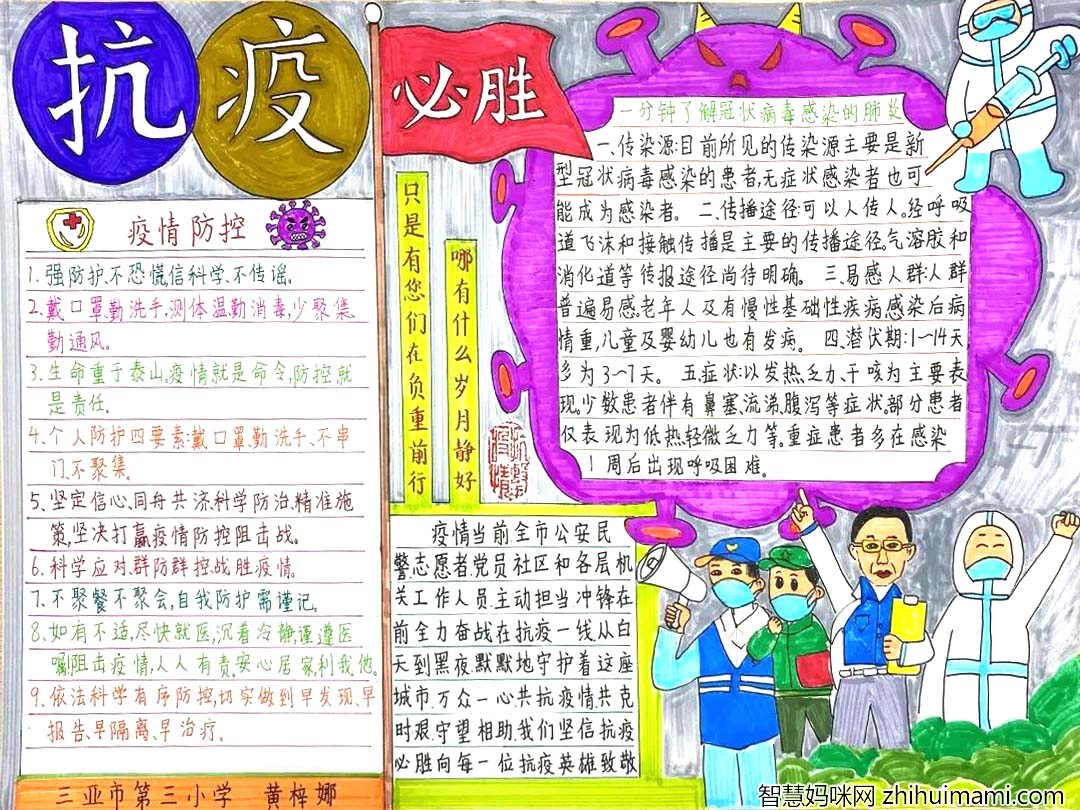 抗疫
必胜
疫情防控
1.强防护,不恐慌,信科学,不传谣。
2.戴口罩,勤洗手,测体温,勤消毒,少聚集
勤通风。
3.生命重于泰山,疫情就是命令,防控就
是责任。
4.个人防护四要素:戴口罩、勤洗手、不串
门、不聚集。
5.坚定信心、同舟共济、科学防治、精准施
策,坚决打赢疫情防控阻击战。
6.科学应对、群防群控,战胜疫情。
7.不聚餐不聚会,自我防护需谨记。
8.如有不适,尽快就医,沉着冷静,谨遵医
嘱,阻击疫情,人人有责,安心居家,利我他
9.依法科学有序防控,切实做到早发现、早
报告、早隔离、早治疗。
三亚市第三小学 黄梓娜
哪有什么岁月静好
只是有您们在负重前行
一分钟了解冠状病毒感染的肺炎
一、传染源:目前所见的传染源主要是新
型冠状病毒感染的患者,无症状感染者也可
能成为感染者。 二、传播途径可以人传人。经呼吸
道飞沫和接触传播是主要的传播途径,气溶胶和
消化道等传报途径尚待明确。 三、易感人群:人群
普遍易感,老年人及有慢性基础性疾病感染后病
情重,儿童及婴幼儿也有发病。 四、潜伏期:1—14天
多为3—7天。 五、症状:以发热、乏力、干咳为主要表
现,少数患者伴有鼻塞、流涕、腹泻等症状,部分患者
仅表现为低热轻微乏力等。重症患者多在感染
1周后出现呼吸困难。
疫情当前,全市公安民
警、志愿者、党员社区和各层机
关工作人员,主动担当,冲锋在
前,全力奋战在抗疫一线,从白
天到黑夜,默默地守护着这座
城市,万众一心共抗疫情,共克
时艰,守望相助,我们坚信抗疫
必胜,向每一位抗疫英雄致敬
智慧妈咪网 zhihuimami.com